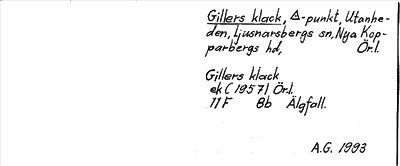 Gillers klack, △-punkt, Utanhe-
den, Ljusnarsbergs sn, Nya Kop-
parbergs hd, Ör.l.
Gillers klack
ek (1957) Ör.l.
11F 8b Älgfall.
A.G. 1993